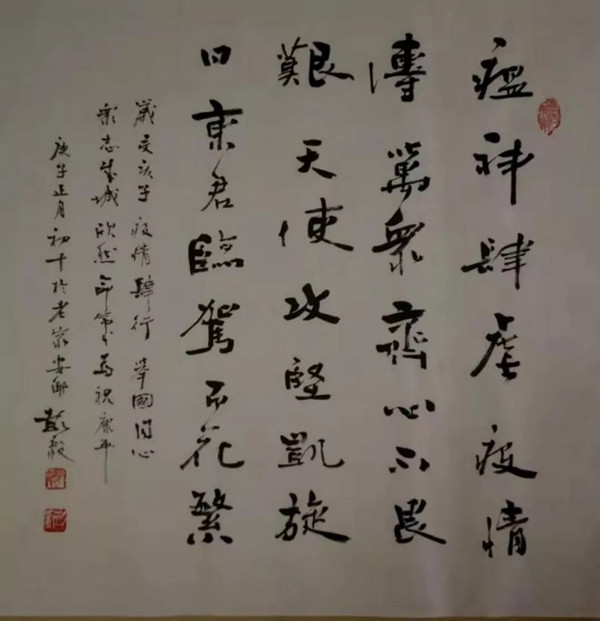 瘟神肆虐疫情
傳萬衆齊心不畏
艱天使攻堅凱旋
日東君臨駕百花繁
歲交亥子疫情肆行舉國同心
衆志成城欣然命筆爲祝康平
庚子正月初十於老家安邱彭毅